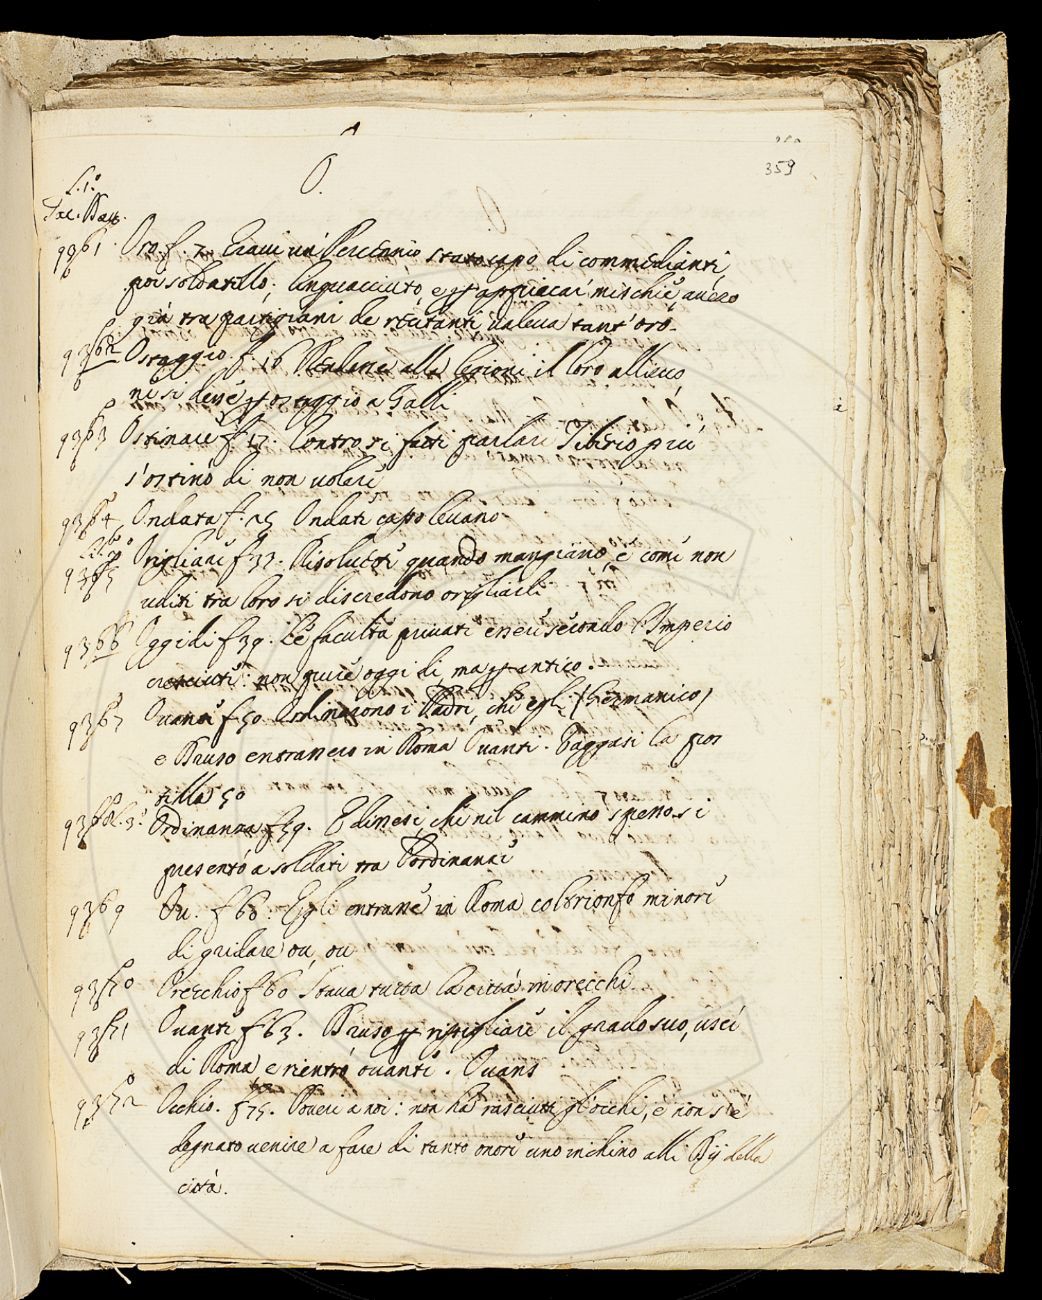 359
O.
L. 1.º
Tac. Dav.
9361 Oro f. 7. Eravi un Percennio stato capo di commedianti,
poi soldatello; linguacciuto, e p appiccar mischie, avezo
già tra partigiani de recitanti valeva tant'oro.
9362 Ostaggio. f. 16 Vedere alle legioni il loro allievo
p ostaggio a Galli
9363 Ostinare f. 17. Contro si fatti parlari Tiberio più
s'ostinò di non volare
9364 Ondata f. 25 Ondati capolevano
9365 Origliare f. 37. Risoluti quando mangiano, e come non
uditi tra loro si discredono origliarli
9366 Oggidì f. 39. Le facultà privati essersi secondo l'Imperio
cresciuti: non pure oggidì, ma p antico.
9367 Ovante f. 50. Ordinarono i Padri, che egli (Germanico)
e Druso entrassero in Roma Ovanti. Vaggasi la pos
tilla 50
9368 L. 3.º Ordinanza f. 59. E dimesi, che nel cammino spesso si
presentò a soldati tra l'ordinanze
9369 Ou. f. 60. Egli entrasse in Roma col trionfo minore
di gridare ou, ou
9370 Orecchio f. 60 Stava tutta la città in orecchi
9371 Ovante f. 63. Druso p ripigliare il grado suo, uscì
di Roma e rientrò ovante. Ovans
9372 Occhio. f. 75. Poveri a noi: non ha rasciutti gl'occhi, e non s'è
degnato venire a fare di tanto onore uno inchino alli Dij della
città.